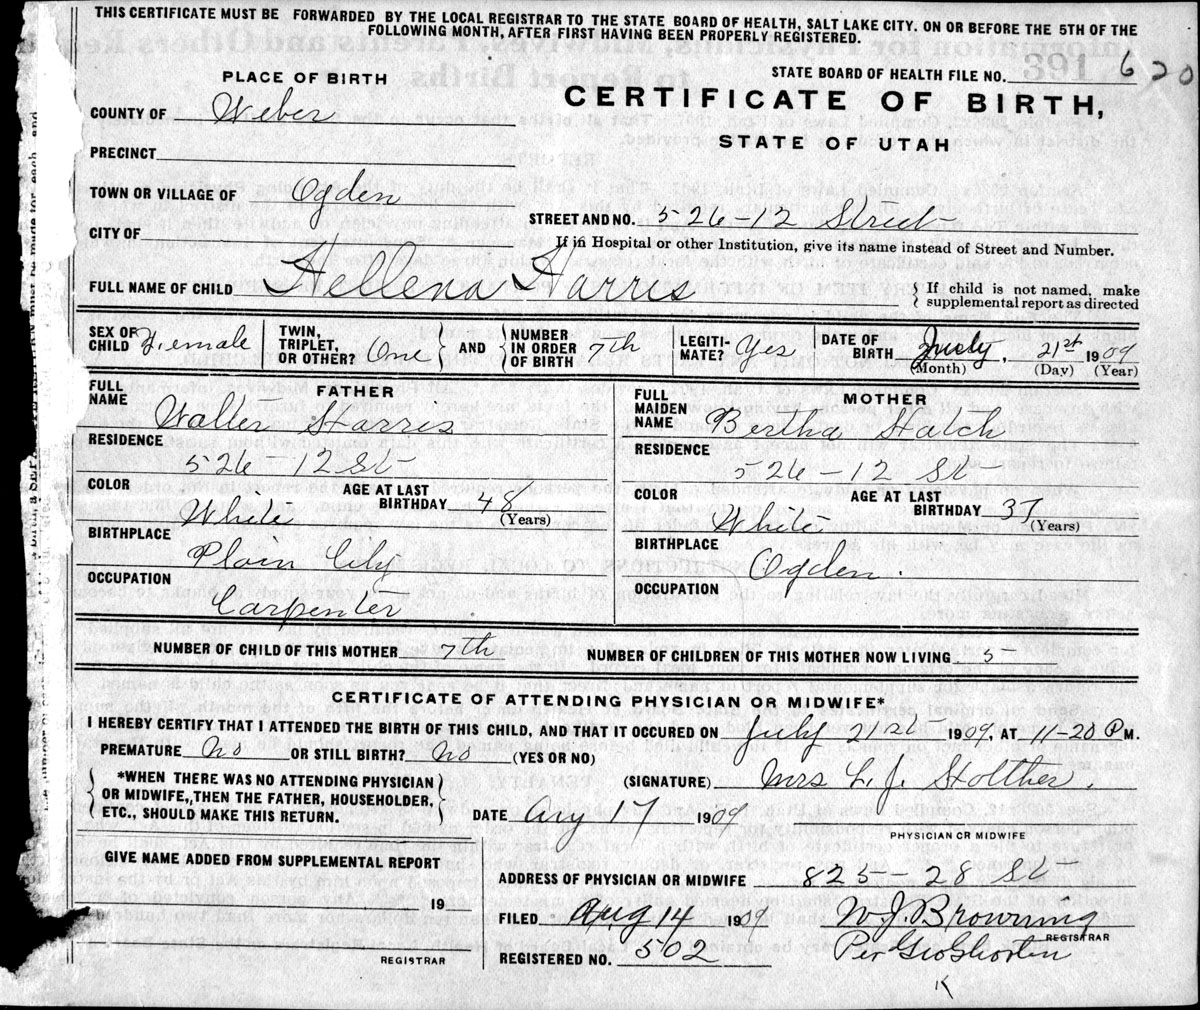 THIS CERTIFICATE MUST BE FORWARDED BY THE LOCAL REGISTRAR TO THE STATE BOARD OF HEALTH, SALT LAKE CITY, ON OR BEFORE THE 5TH OF THE
FOLLOWING MONTH, AFTER FIRST HAVING BEEN PROPERLY REGISTERED.
PLACE OF BIRTH
STATE BOARD OF HEALTH FILE NO. 620
COUNTY OF Weber
CERTIFICATE OF BIRTH,
STATE OF UTAH
PRECINCT
TOWN OR VILLAGE OF Ogden
STREET AND NO. 526-12 Street
CITY OF
If in Hospital or other Institution, give its name instead of Street and Number.
FULL NAME OF CHILD Hellena Harris
{ If child is not named, make
supplemental report as directed
SEX OF CHILD Female
TWIN, TRIPLET, OR OTHER? One } AND { NUMBER IN ORDER OF BIRTH 7th
LEGITIMATE? Yes
DATE OF BIRTH July, 21st 1909
(Month) (Day) (Year)
FATHER
FULL NAME Walter Harris
RESIDENCE
526-12 St
COLOR White AGE AT LAST BIRTHDAY 48 (Years)
BIRTHPLACE Plain City
OCCUPATION
Carpenter
MOTHER
FULL MAIDEN NAME Bertha Hatch
RESIDENCE
526-12 St
COLOR White AGE AT LAST BIRTHDAY 37 (Years)
BIRTHPLACE Ogden.
OCCUPATION
NUMBER OF CHILD OF THIS MOTHER 7th NUMBER OF CHILDREN OF THIS MOTHER NOW LIVING 5
CERTIFICATE OF ATTENDING PHYSICIAN OR MIDWIFE*
I HEREBY CERTIFY THAT I ATTENDED THE BIRTH OF THIS CHILD, AND THAT IT OCCURED ON July 21st 1909, AT 11-20 P M.
PREMATURE No OR STILL BIRTH? No (YES OR NO)
{ *WHEN THERE WAS NO ATTENDING PHYSICIAN
OR MIDWIFE, THEN THE FATHER, HOUSEHOLDER,
ETC., SHOULD MAKE THIS RETURN. }
(SIGNATURE) Mrs L. J.
DATE Aug 17 1909
PHYSICIAN OR MIDWIFE
GIVE NAME ADDED FROM SUPPLEMENTAL REPORT
19
REGISTRAR
ADDRESS OF PHYSICIAN OR MIDWIFE 825-28 St
FILED Aug 14 1909 W. J. Browning
REGISTRAR
REGISTERED NO. 502 Per Geo